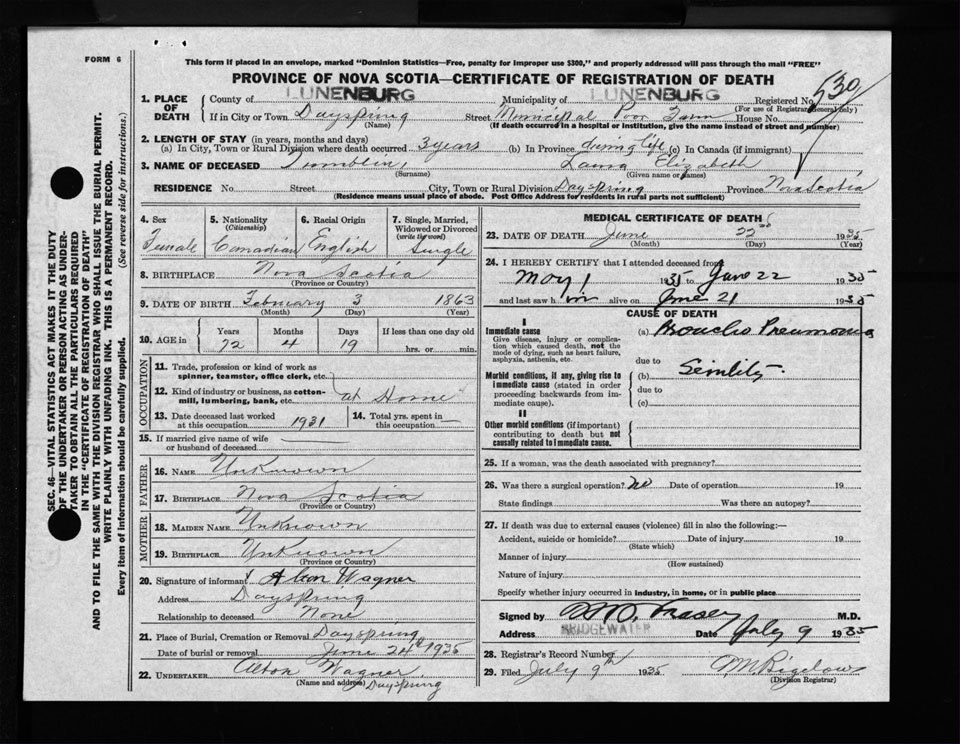 FORM 6
This form if placed in an envelope, marked "Dominion Statistics—Free, penalty for improper use $300," and properly addressed will pass through the mail "FREE"
PROVINCE OF NOVA SCOTIA—CERTIFICATE OF REGISTRATION OF DEATH
1. PLACE OF DEATH County of LUNENBURG Municipality of LUNENBURG Registered No. 530
(For use of Registrar General only)
If in City or Town Dayspring Street Municipal Poor Farm House No.
(Name) (If death occurred in a hospital or institution, give the name instead of street and number)
2. LENGTH OF STAY (in years, months and days)
(a) In City, Town or Rural Division where death occurred 3 years (b) In Province during life (c) In Canada (if immigrant)
3. NAME OF DECEASED Laura Elizabeth
(Surname) (Given name or names)
RESIDENCE No. Street City, Town or Rural Division Dayspring Province Nova Scotia
(Residence means usual place of abode. Post Office Address for residents in rural parts not sufficient)
4. Sex Female
5. Nationality (Citizenship) Canadian
6. Racial Origin English
7. Single, Married, Widowed or Divorced (write the word) Single
8. BIRTHPLACE Nova Scotia
(Province or Country)
9. DATE OF BIRTH February 3 1863
(Month) (Day) (Year)
10. AGE in Years Months Days If less than one day old
72 4 19 hrs. or min.
OCCUPATION
11. Trade, profession or kind of work as spinner, teamster, office clerk, etc.
12. Kind of industry or business, as cotton-mill, lumbering, bank, etc. at Home
13. Date deceased last worked at this occupation 1931
14. Total yrs. spent in this occupation —
15. If married give name of wife or husband of deceased
FATHER
16. NAME Unknown
17. BIRTHPLACE Nova Scotia
(Province or Country)
MOTHER
18. MAIDEN NAME Unknown
19. BIRTHPLACE Unknown
(Province or Country)
20. Signature of informant Alton Wagner
Address Dayspring
Relationship to deceased None
21. Place of Burial, Cremation or Removal Dayspring
Date of burial or removal June 24th 1935
22. UNDERTAKER Alton Wagner
(Name and address) Dayspring
MEDICAL CERTIFICATE OF DEATH
23. DATE OF DEATH June 22nd 1935
(Month) (Day) (Year)
24. I HEREBY CERTIFY that I attended deceased from
May 1 1935 to June 22 1935
and last saw h im alive on June 21 1935
CAUSE OF DEATH
I
Immediate cause
Give disease, injury or complication which caused death, not the mode of dying, such as heart failure, asphyxia, asthenia, etc.
(a) Broncho Pneumonia
due to
Morbid conditions, if any, giving rise to immediate cause (stated in order proceeding backwards from immediate cause).
(b) Senility
due to
(c)
II
Other morbid conditions (if important) contributing to death but not causally related to immediate cause.
25. If a woman, was the death associated with pregnancy?
26. Was there a surgical operation? no Date of operation 19
State findings Was there an autopsy?
27. If death was due to external causes (violence) fill in also the following:—
Accident, suicide or homicide? Date of injury 19
(State which)
Manner of injury
(How sustained)
Nature of injury
Specify whether injury occurred in industry, in home, or in public place
Signed by Frasey M.D.
Address BRIDGEWATER Date July 9 1935
28. Registrar's Record Number
29. Filed July 9th 1935 Bigelow
(Division Registrar)
SEC. 46—VITAL STATISTICS ACT MAKES IT THE DUTY
OF THE UNDERTAKER OR PERSON ACTING AS UNDER-
TAKER TO OBTAIN ALL THE PARTICULARS REQUIRED
IN THE "CERTIFICATE OF REGISTRATION OF DEATH"
AND TO FILE THE SAME WITH THE DIVISION REGISTRAR WHO SHALL ISSUE THE BURIAL PERMIT.
WRITE PLAINLY WITH UNFADING INK. THIS IS A PERMANENT RECORD.
Every item of information should be carefully supplied. (See reverse side for instructions.)